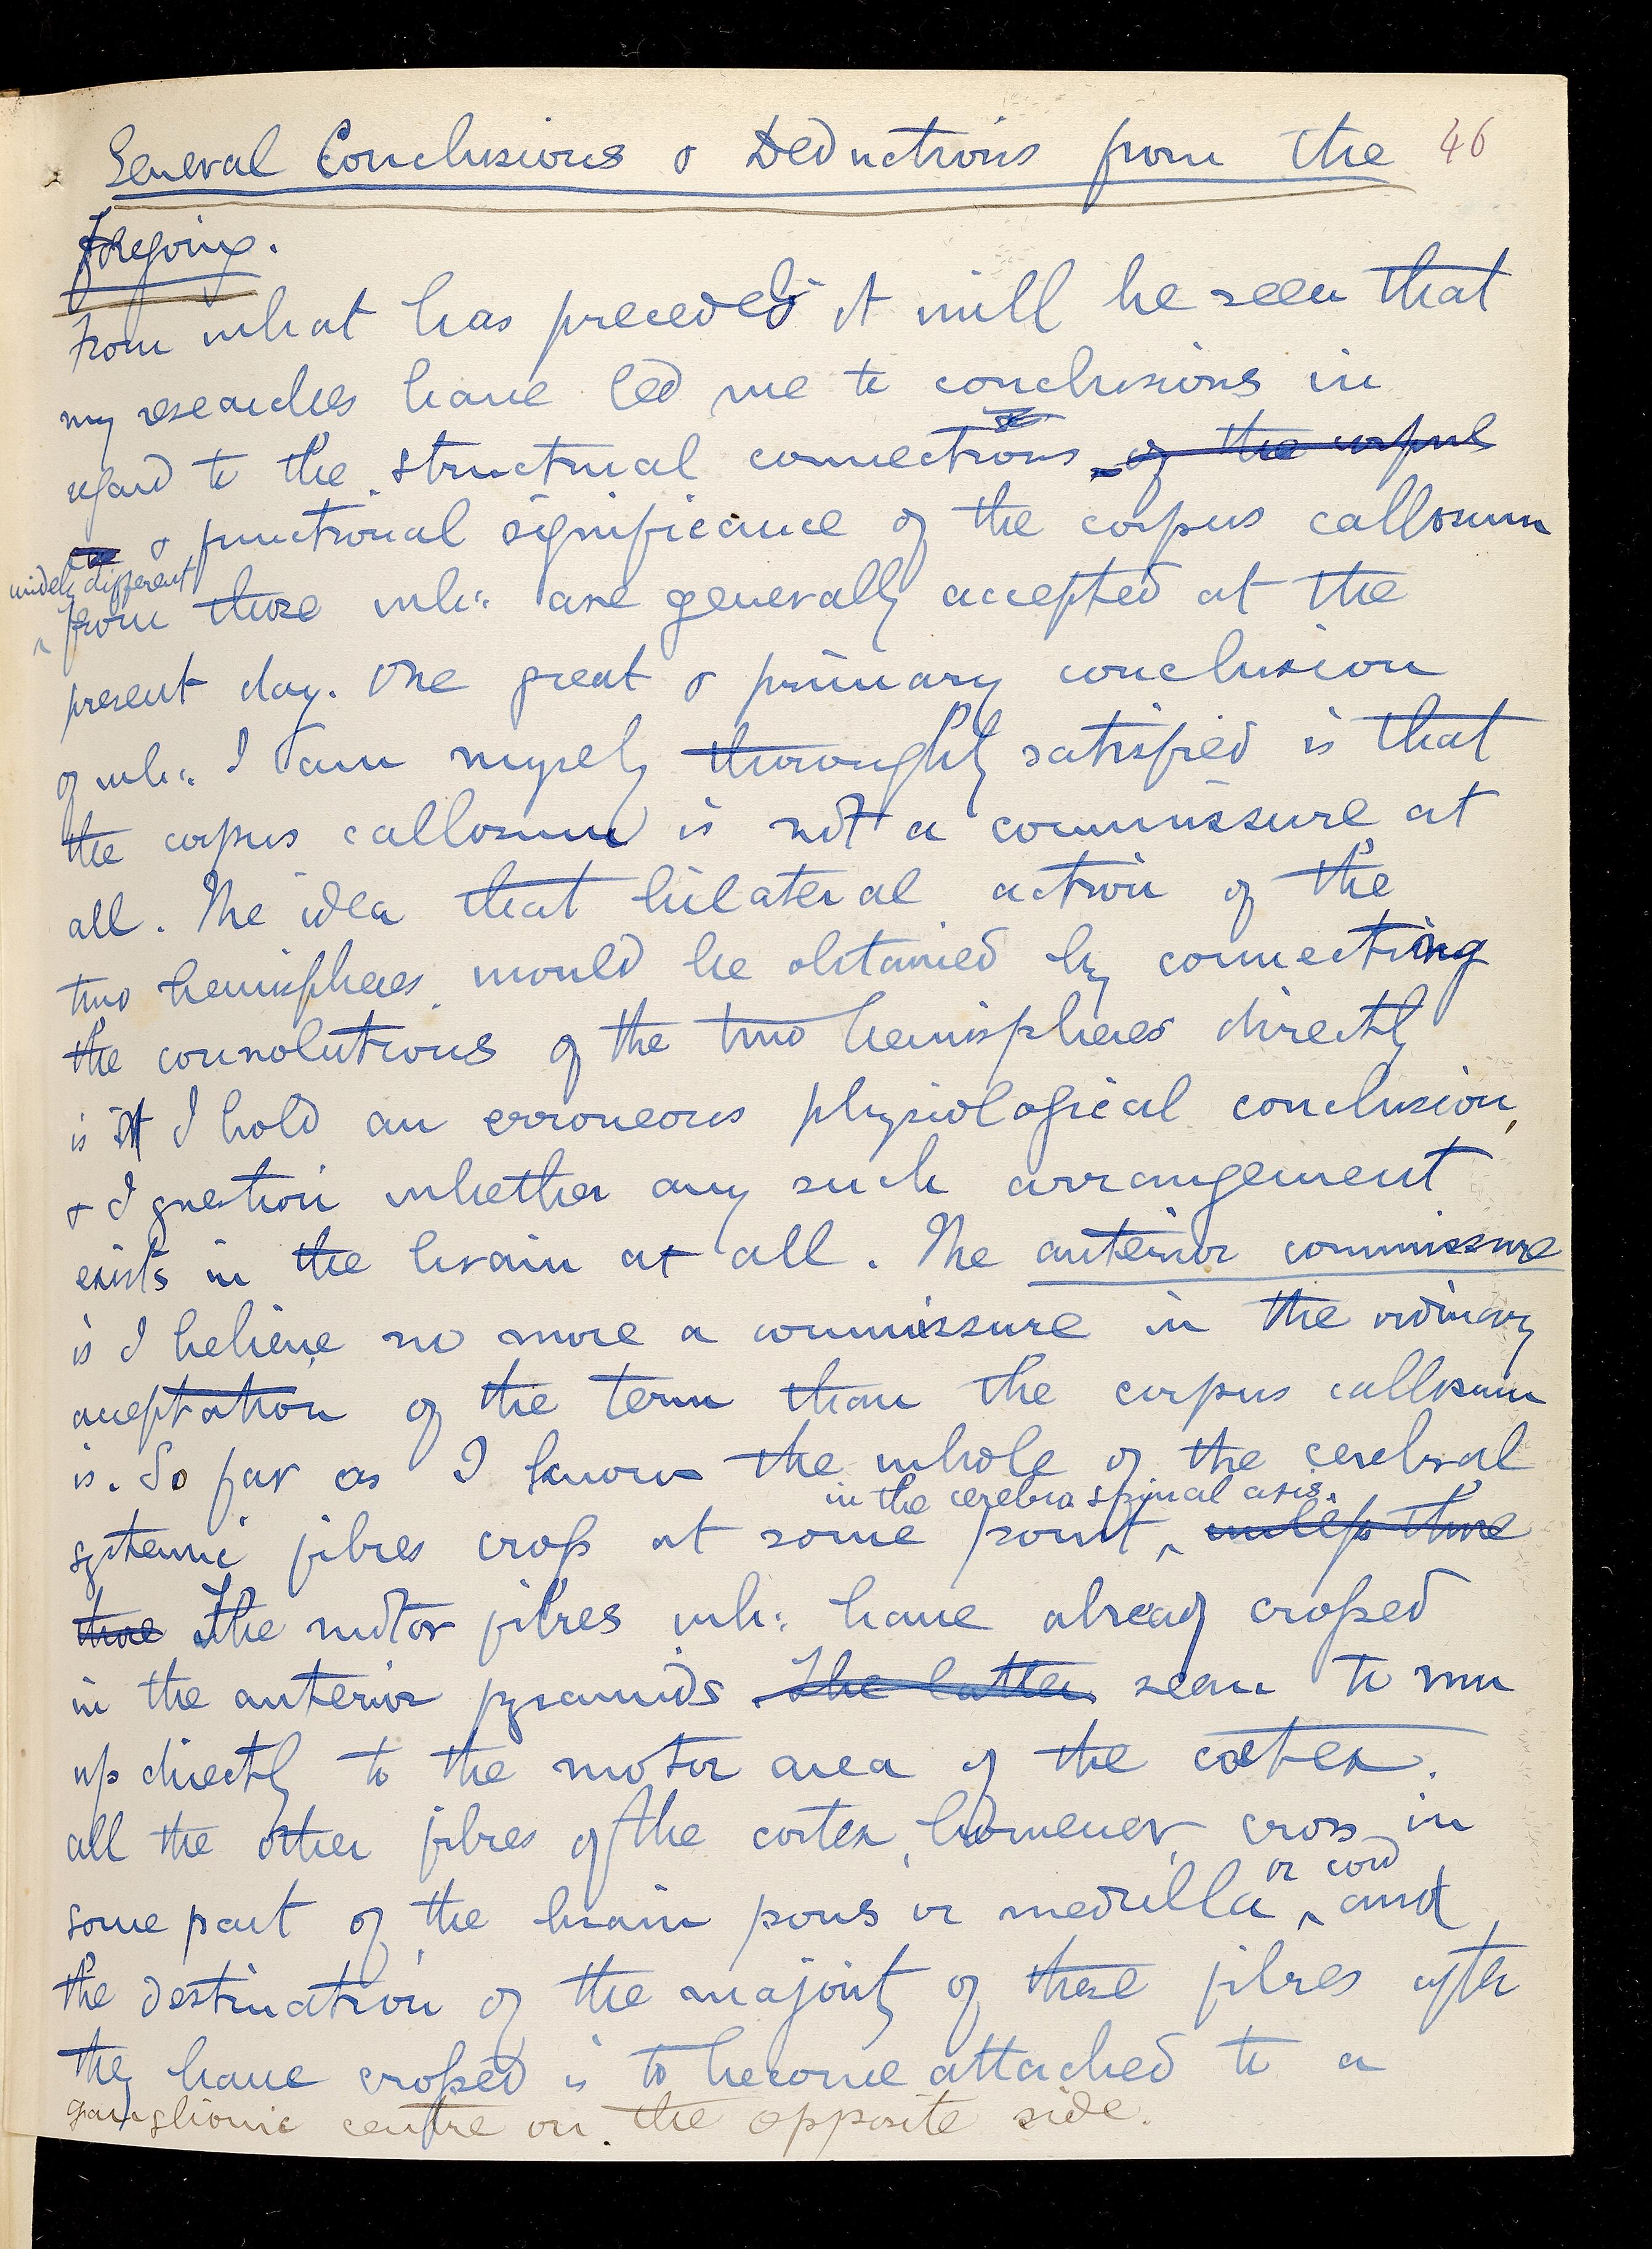 General Conclusions & Deductions from the 46
foregoing.
From what has preceded it will be seen that
my researches have led me to conclusions in
regard to the structural connections of the corpus
& functional significance of the corpus callosum
widely different
from those wh: are generally accepted at the
present day. One great & primary conclusion
of wh: I am myself thoroughly satisfied is that
the corpus callosum is not a commissure at
all. The idea that bilateral action of the
two hemispheres would be obtained by connecting
the convolutions of the two hemispheres directly
is I hold an erroneous physiological conclusion,
& I question whether any such arrangement
exists in the brain at all. The anterior commissure
is I believe no more a commissure in the ordinary
acceptation of the term than the corpus callosum
is. So far as I know the whole of the cerebral
in the cerebro spinal axis.
systemic fibres cross at some point, unless those
those The motor fibres wh: have already crossed
in the anterior pyramids The latter seem to run
up directly to the motor area of the cortex.
all the other fibres of the cortex, however, cross in
or cord
some part of the brain pons or medulla and
the destination of the majority of these fibres after
they have crossed is to become attached to a
ganglionic centre on the opposite side.